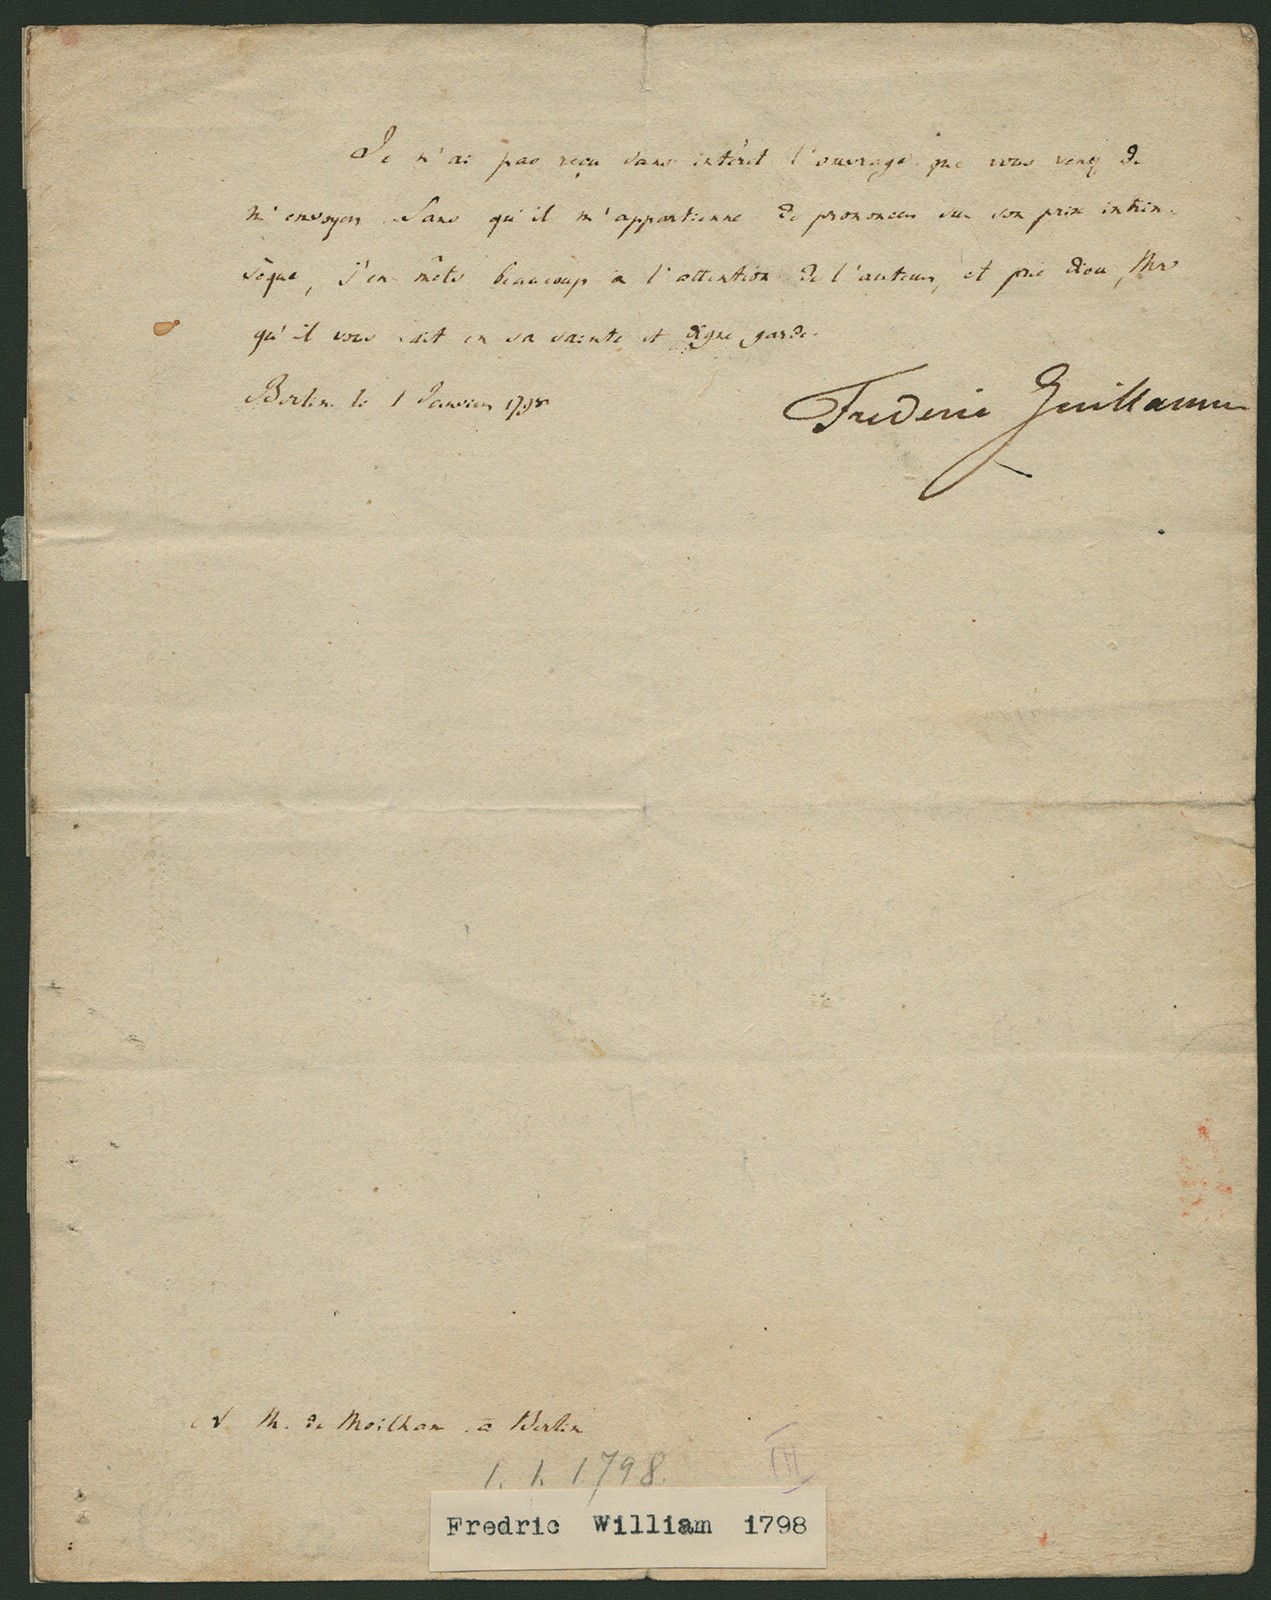 Je n'ai pas reçu sans intérêt l'ouvrage que vous venez de
m'envoyer. Sans qu'il m'appartienne de prononcer sur son prix intrin-
sèque, j'en mets beaucoup à l'attention de l'auteur, et prie dieu, Mr
qu'il vous ait en sa sainte et digne garde.
Berlin le 1 Janvier 1798
Frederic Guillaume
M. de Meilhan à Berlin
1. 1. 1798.
III
Fredric William 1798